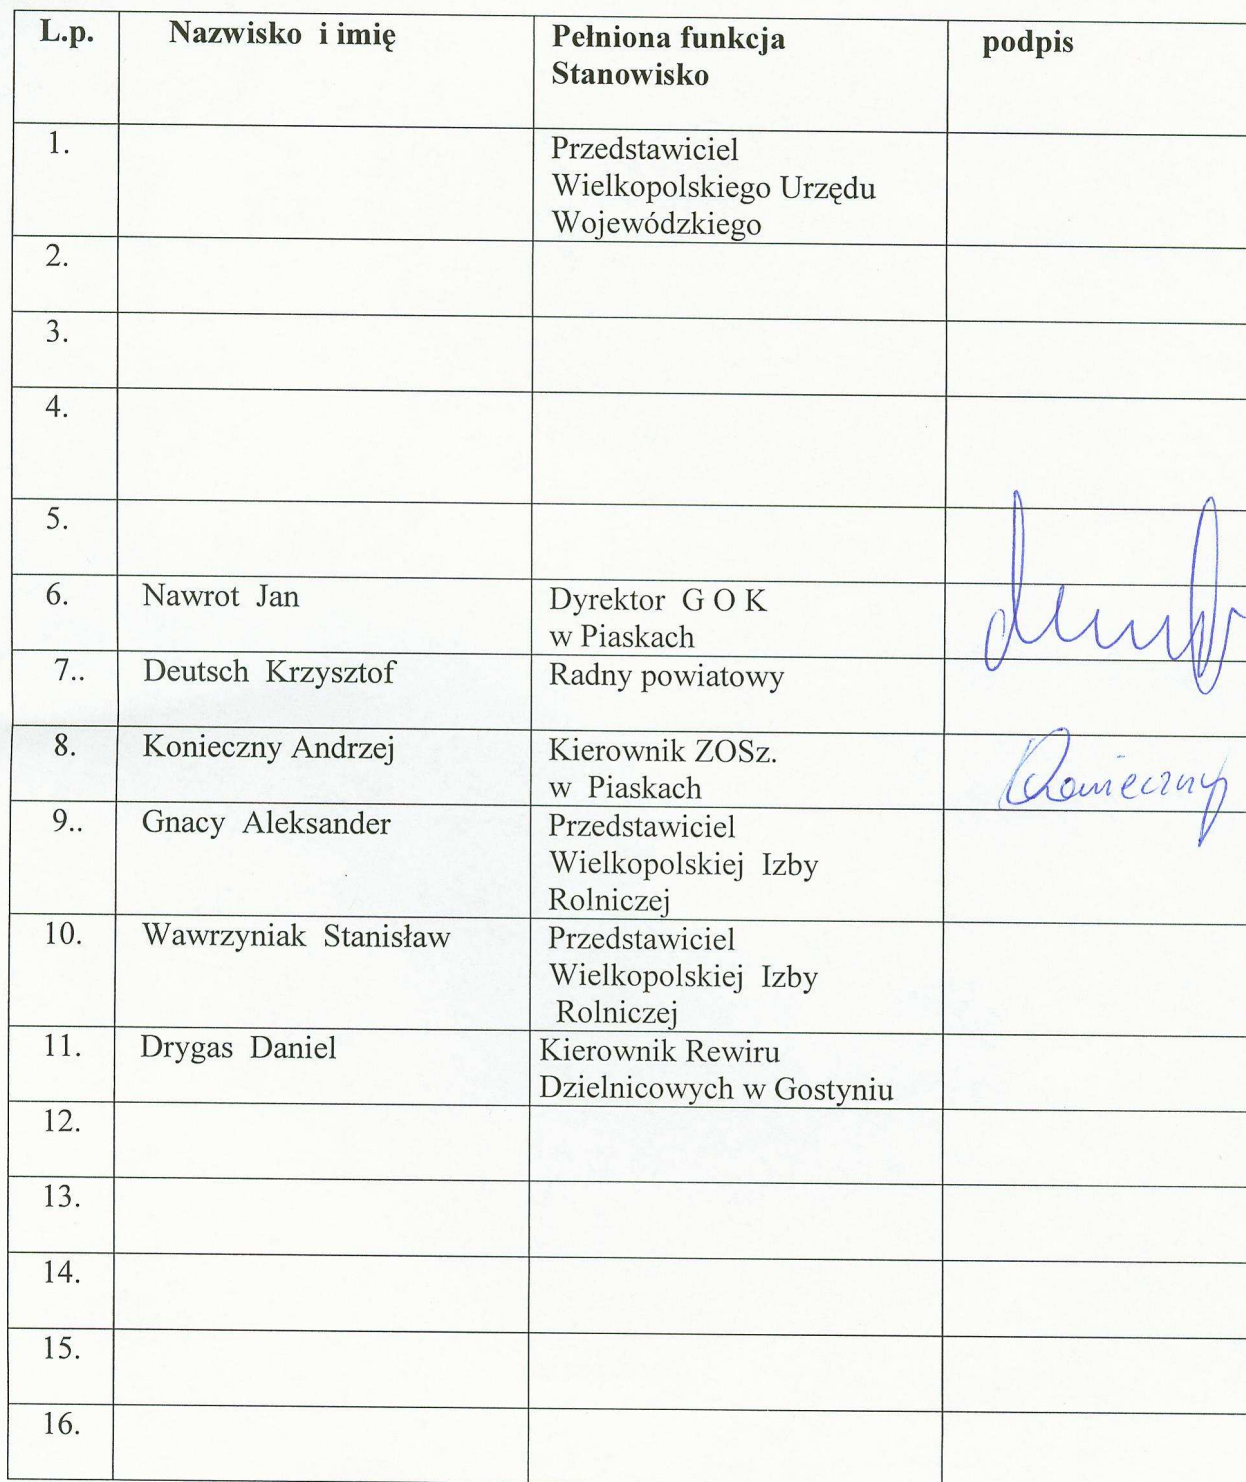 L.p. Nazwisko i imię Pełniona funkcja podpis
Stanowisko
1. Przedstawiciel
Wielkopolskiego Urzędu
Wojewódzkiego
2.
3.
4.
5.
6. Nawrot Jan Dyrektor G O K
w Piaskach
7.. Deutsch Krzysztof Radny powiatowy
8. Konieczny Andrzej Kierownik ZOSz. Konieczny
w Piaskach
9.. Gnacy Aleksander Przedstawiciel
Wielkopolskiej Izby
Rolniczej
10. Wawrzyniak Stanisław Przedstawiciel
Wielkopolskiej Izby
Rolniczej
11. Drygas Daniel Kierownik Rewiru
Dzielnicowych w Gostyniu
12.
13.
14.
15.
16.